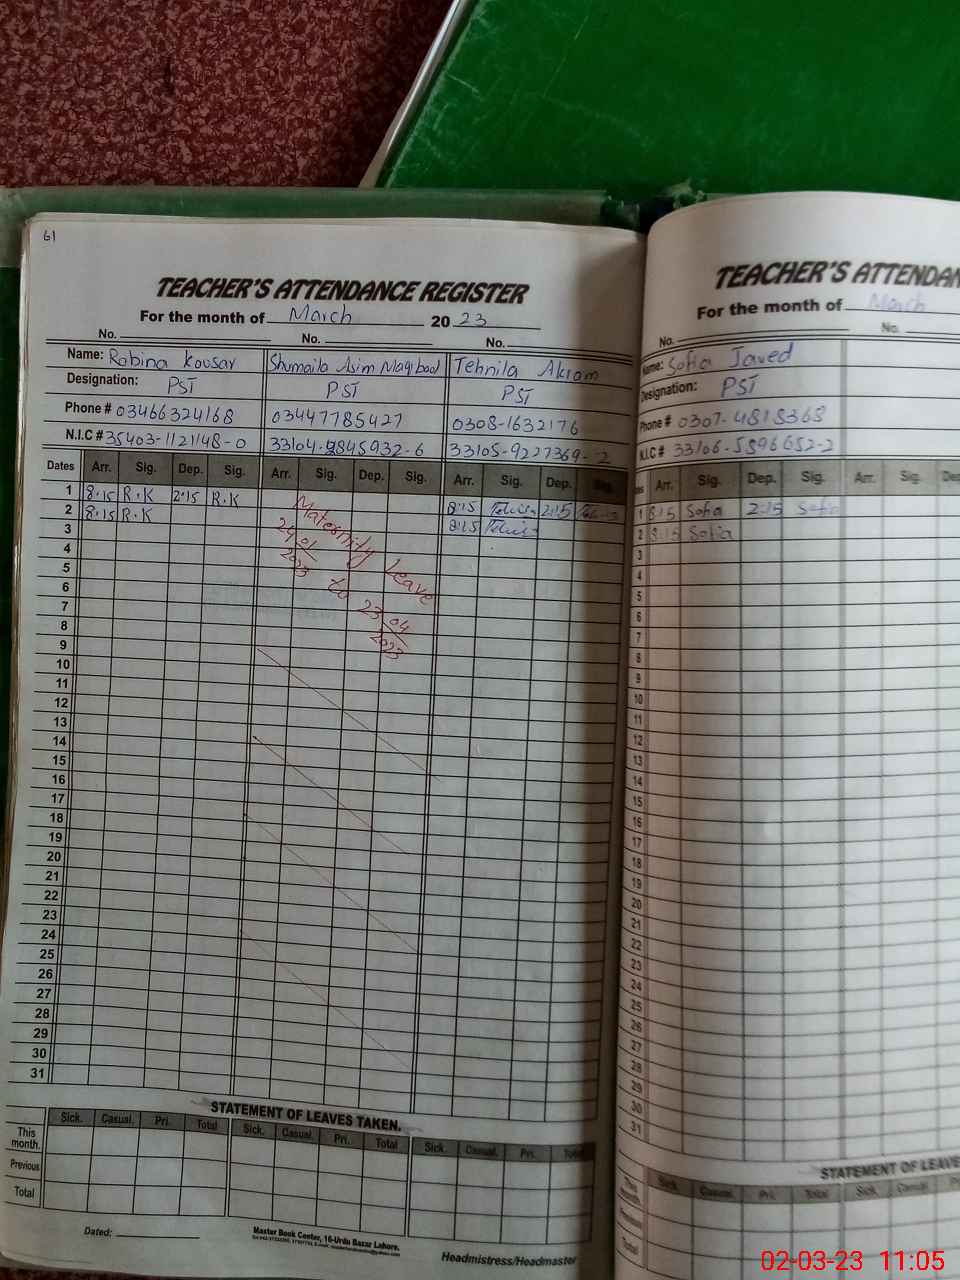 61
TEACHER'S ATTENDANCE REGISTER
For the month of March 2023
No. No. No.
Name: Robina Kousar Shumaila Asim Maqbool Tehnila Akram
Designation: PST PST PST
Phone # 03466324168 03447785427 0308-1632176
N.I.C # 35403-1121148-0 33104-9845932-6 33105-9227369-2
Dates Arr. Sig. Dep. Sig. Arr. Sig. Dep. Sig. Arr. Sig. Dep. Sig.
1 8:15 R.K 2:15 R.K 8:15 2:15
2 8:15 R.K 8:15
Maternity Leave
24 01 2023 to 23 04 2023
3
4
5
6
7
8
9
10
11
12
13
14
15
16
17
18
19
20
21
22
23
24
25
26
27
28
29
30
31
STATEMENT OF LEAVES TAKEN.
Sick. Casual. Pri. Total Sick. Casual. Pri. Total Sick. Casual. Pri. Total
This month.
Previous
Total
Dated:
Master Book Center, 16-Urdu Bazar Lahore.
Headmistress/Headmaster
TEACHER'S ATTENDAN
For the month of March
No. No.
Name: Sofia Javed
Designation: PST
Phone # 0307-4815368
N.I.C # 33106-5596652-2
Arr. Sig. Dep. Sig. Arr. Sig. Dep
1 8:15 Sofia 2:15 Sofia
2 8:15 Sofia
3
4
5
6
7
8
9
10
11
12
13
14
15
16
17
18
19
20
21
22
23
24
25
26
27
28
29
30
31
STATEMENT OF LEAVE
Sick. Casual. Pri. Total Sick. Casual.
This month.
Previous
Total
02-03-23 11:05